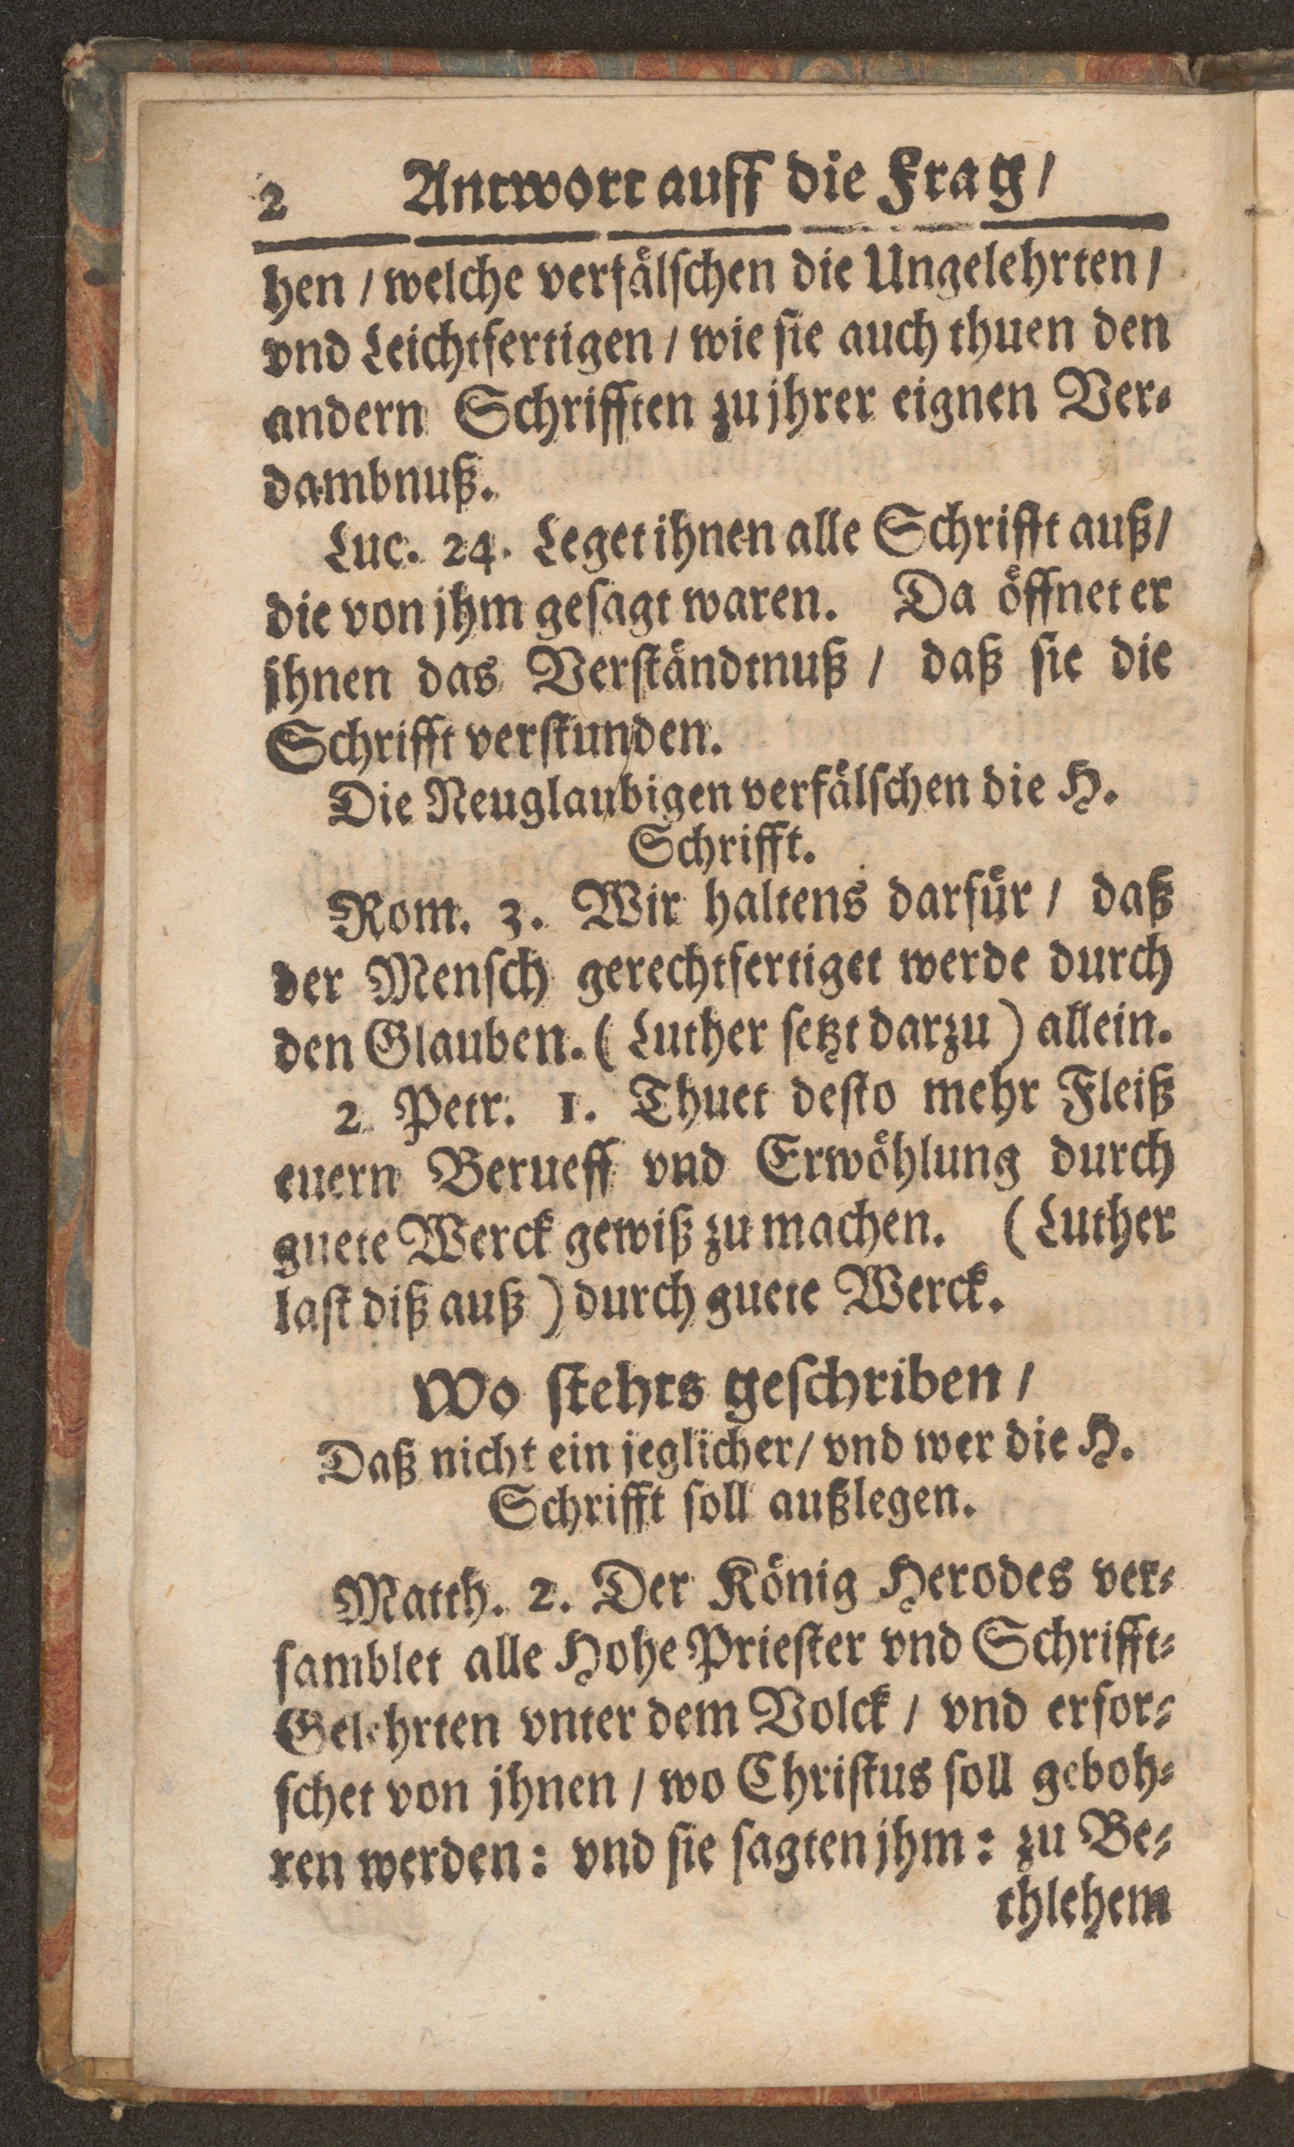 2 Antwort auff die Frag /
hen / welche verfälschen die Ungelehrten /
vnd Leichtfertigen / wie sie auch thuen den
andern Schrifften zu jhrer eignen Ver-
dambnuß.
Luc. 24. Leget ihnen alle Schrifft auß /
die von jhm gesagt waren. Da öffnet er
ihnen das Verständtnuß / daß sie die
Schrifft verstunden.
Die Neuglaubigen verfälschen die H.
Schrifft.
Rom. 3. Wir haltens darfür / daß
der Mensch gerechtfertiget werde durch
den Glauben. ( Luther setzt darzu ) allein.
2. Petr. 1. Thuet desto mehr Fleiß
euern Berueff vnd Erwöhlung durch
guete Werck gewiß zu machen. ( Luther
last diß auß ) durch guete Werck.
Wo stehts geschriben /
Daß nicht ein jeglicher / vnd wer die H.
Schrifft soll außlegen.
Matth. 2. Der König Herodes ver-
samblet alle Hohe Priester vnd Schrifft-
Gelehrten vnter dem Volck / vnd erfor-
schet von jhnen / wo Christus soll geboh-
ren werden: vnd sie sagten jhm: zu Be-
thlehem